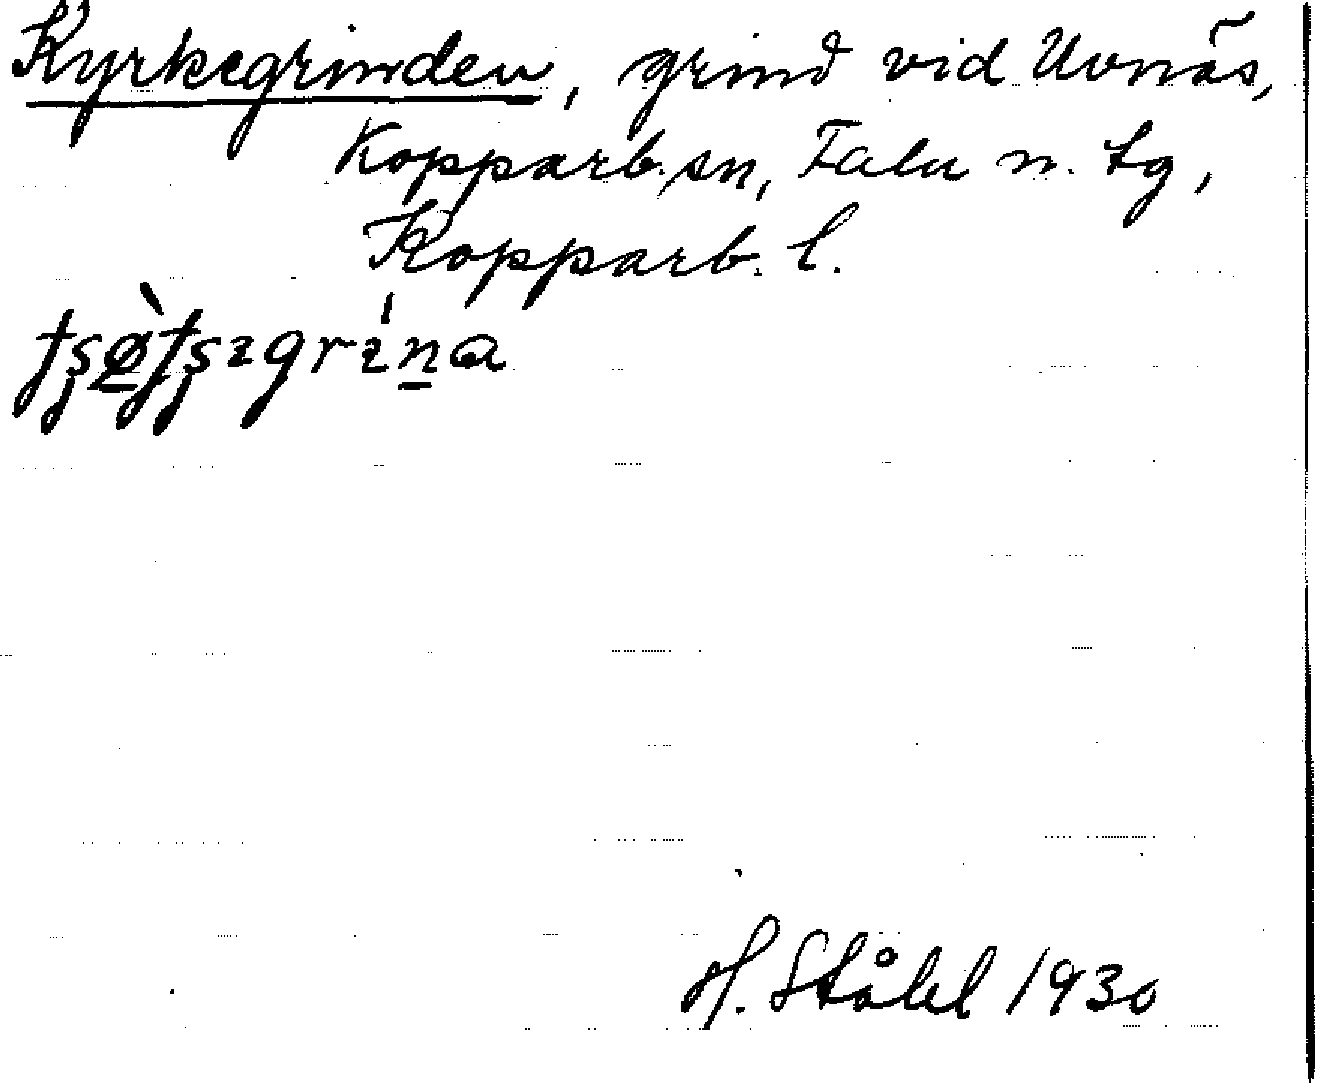 Kyrkegrinden, grind vid Uvnäs,
Kopparb. sn, Falu n. tg,
Kopparb. l.
H. Ståhl 1930